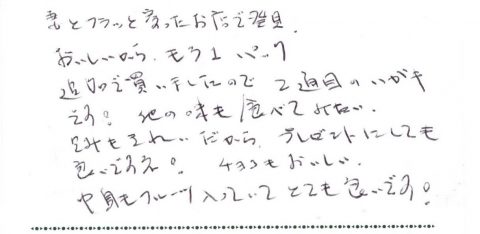 妻とフラッと寄ったお店で発見。
おいしいから、もう1パック
追加で買いましたので 2週目のいがき
です! 他の味も食べてみたい。
きれいだから、プレゼントにしても
良いですね! チョコもおいしい。
中身もフルーツ入っていてとても良いです!